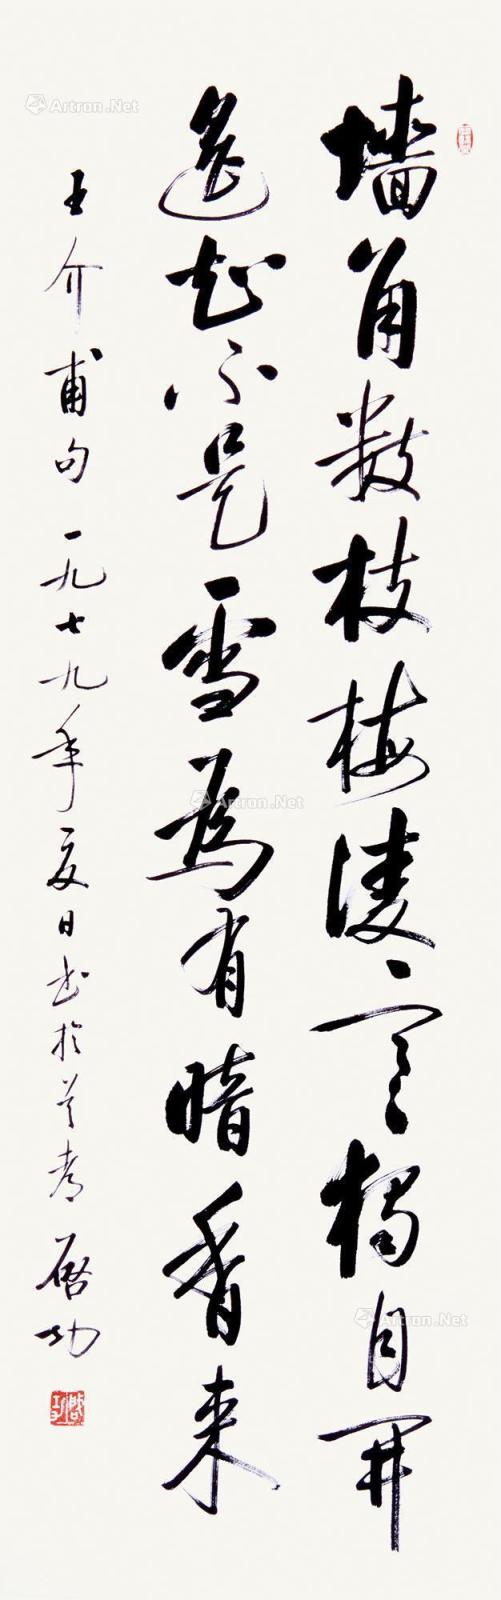 墙角数枝梅凌寒独自开
遥知不是雪为有暗香来
王介甫句 一九七九年夏日书于首都 启功
启功
Artron.Net
Artron.Net
Artron.Net